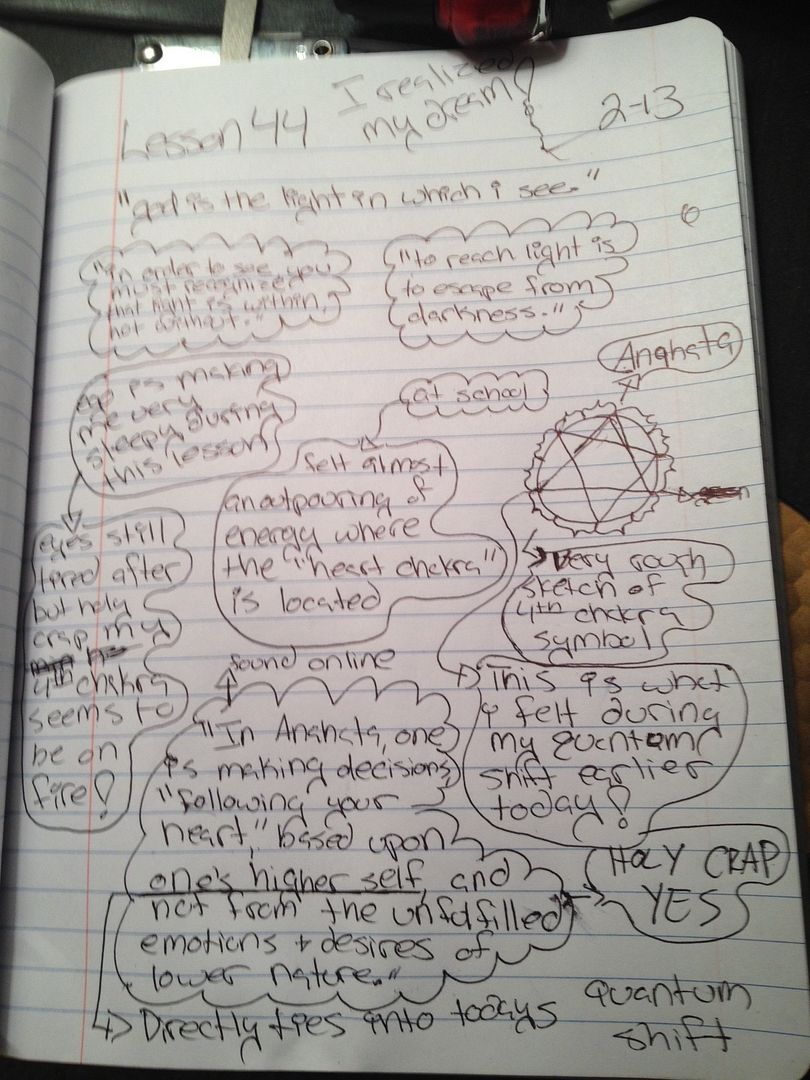 Lesson 44
I realized
my dream!
2-13
"god is the light in which i see."
"in order to see, you
must recognized
that light is within,
not without."
"to reach light is
to escape from
darkness."
Anahata
ego is making
me very
sleepy during
this lesson
at school
felt almost
an outpouring of
energy where
the "heart chakra"
is located
eyes still
tired after
but holy
crap my
4th chakra
seems to
be on
fire!
very rough
sketch of
4th chakra
symbol
This is what
i felt during
my quantum
shift earlier
today!
found online
"In Anahata, one
is making decisions,
"following your
heart," based upon
one's higher self, and
not from the unfulfilled
emotions + desires of
lower nature."
HOLY CRAP
YES
Directly ties into todays quantum
shift